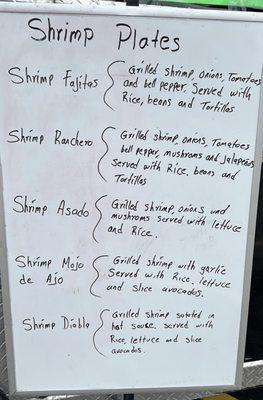 Shrimp Plates
Shrimp Fajitas
Grilled shrimp, onions, Tomatoes
and bell pepper, Served with
Rice, beans and Tortillas
Shrimp Ranchero
Grilled shrimp, onions, Tomatoes
bell pepper, mushroms and Jalapeños
Served with Rice, beans and
Tortillas
Shrimp Asado
Grilled shrimp, onions and
mushroms served with lettuce
and Rice.
Shrimp Mojo
de Ajo
Grilled shrimp with garlic
Served with Rice, lettuce
and slice avocados.
Shrimp Diablo
Grilled shrimp sateted in
hot sauce, served with
Rice, lettuce and slice
avocados.